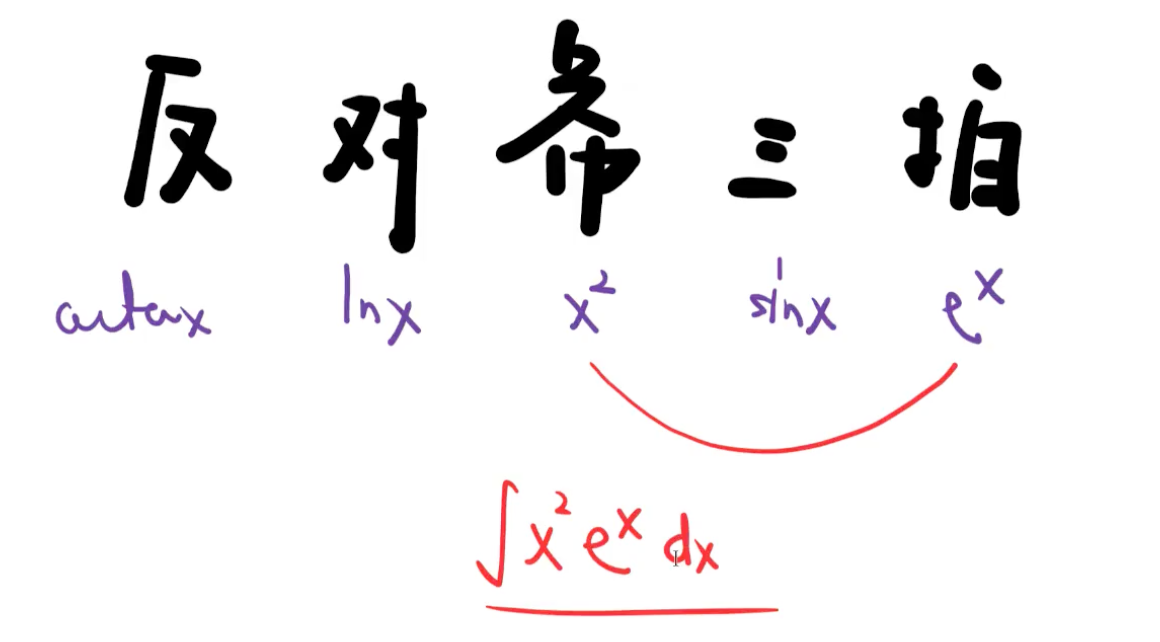 反 对 幂 三 拍
arctanx lnx x² sinx eˣ
∫x²eˣdx